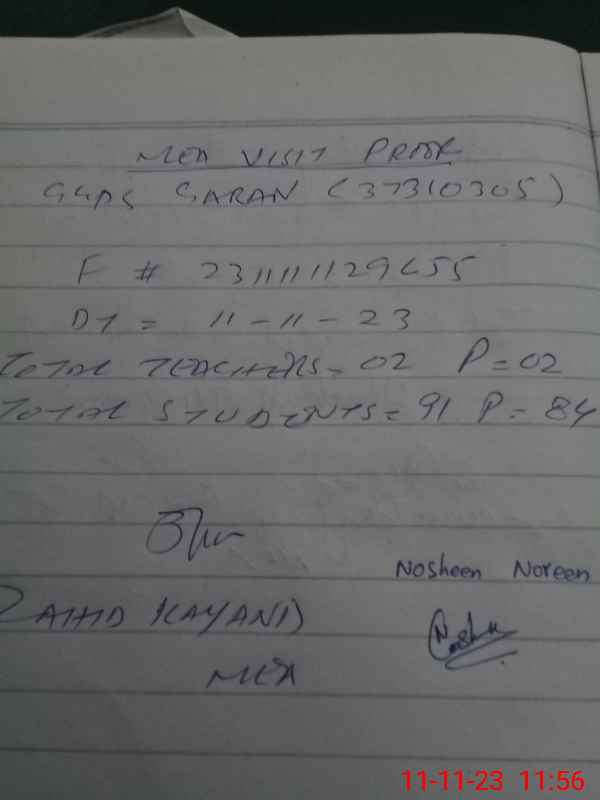 MEA VISIT PROOF
GGPS GARAN (37310305)
F # 231111129655
DT = 11-11-23
TOTAL TEACHERS = 02 P = 02
TOTAL STUDENTS = 91 P = 84
Nosheen Noreen
ZAHID KAYANI
MEA
11-11-23 11:56